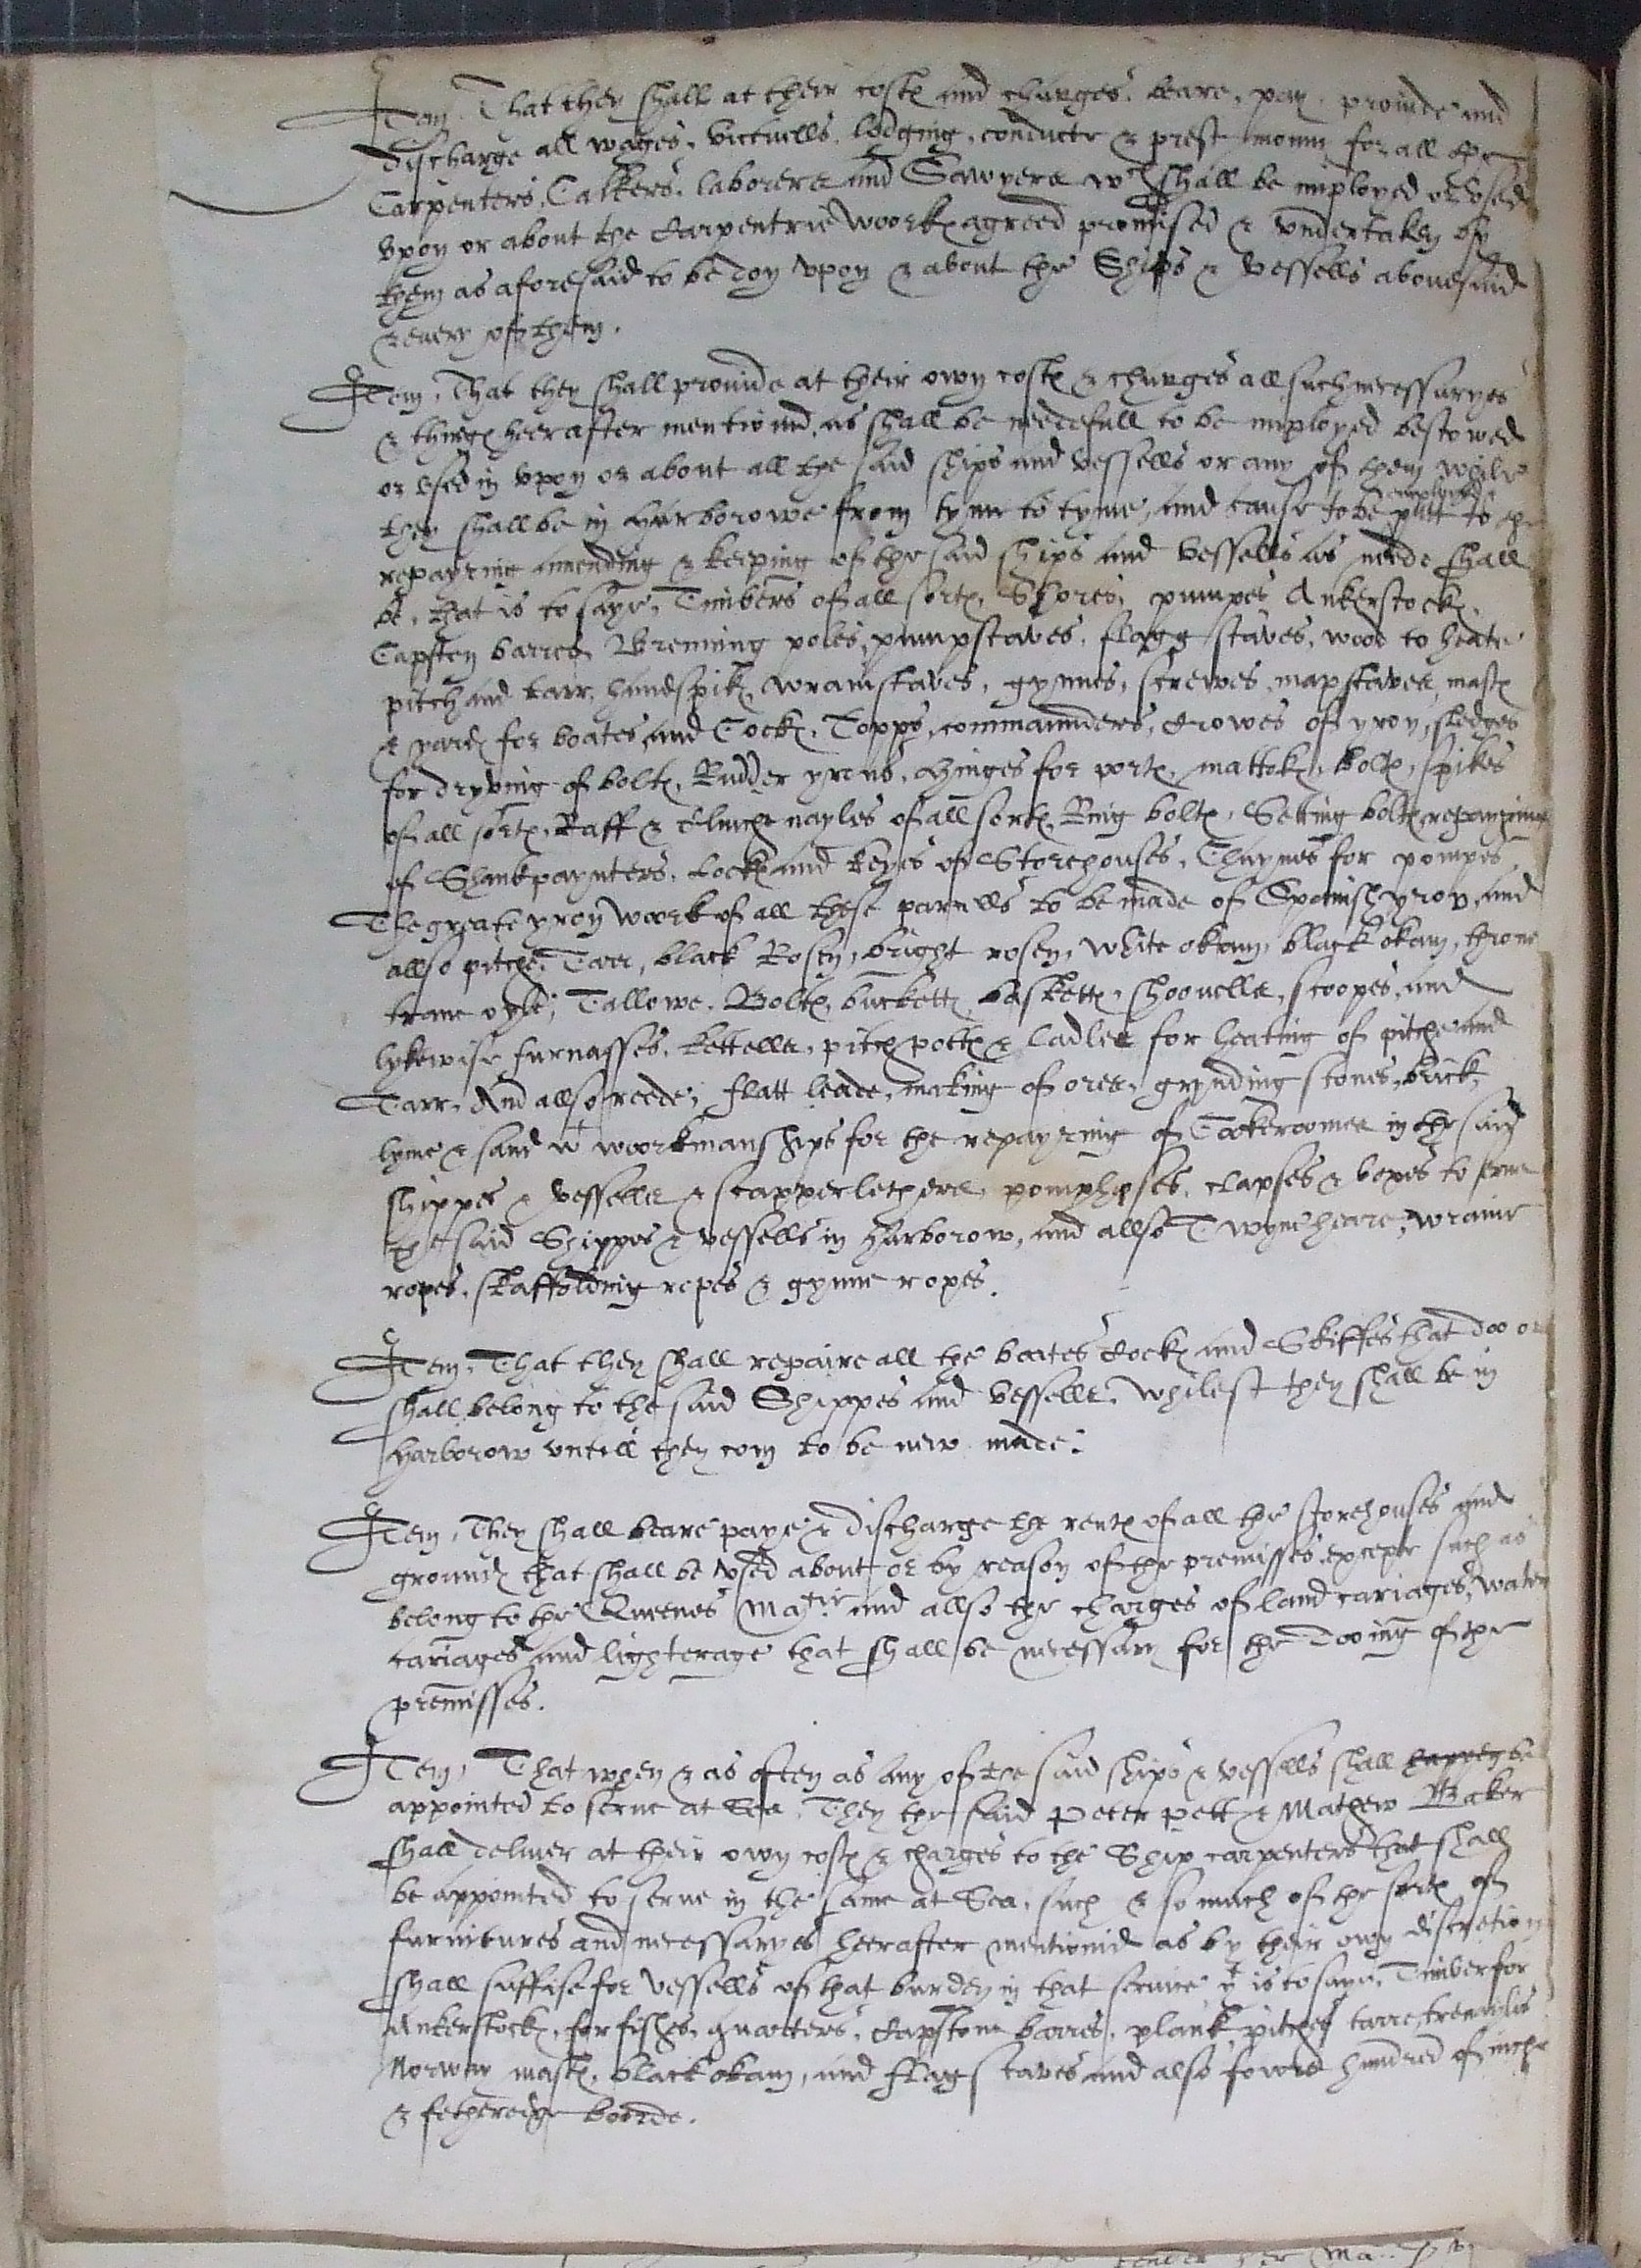 Item. That they shall at their costes and charges. beare, pay, provide and
discharge all wages, victuells, lodging, conducte & prest monny for all the
Carpenters, Calkers, laborers and Sawyers wch shall be imployed or vsed
vpon or about the Carpentrie woorkes agreed promised & vndertaken by
them as aforesaid to be don vpon & about the Ships & vessells abouesaid
& euery of them.
Item, That they shall prouide at their own costes & charges all such necessaryes
& thinges heerafter mentionid, as shall be needefull to be imployed bestowed
or vsed in vpon or about all the said ships and vessells or any of them while
they shall be in Harborowe from tyme to tyme, and cause to be putt to the
imployed
repayring amending & keeping of the said ships and vessells as neede shall
be, that is to saye, Timbers of all sortes, Shores, pumpes Ankerstockes,
Capsten barres, Breming poles, pumpstaves, flagg staves, wood to heate
pitch and tarr, handspikes, wrainstaves, gynnes, screwes, mapstaves, mastes
& yardes for boates and Cockes, Topps, commaunders, Crowes of yron, sledges
for dryving of boltes, Rudder yrons, Hinges for portes, mattokes, boltes, spikes
of all sortes, Raff & Clinche nayles of all sortes, Ring boltes, Setting boltes, repayring
of Shankpaynters, Lockes and keyes of Storehouses, Chaynes for pompes
The greate yron woork of all these parcells to be made of Spanish yron, and
allso pitche, Tarr, black Rosen, bright rosen, white okam, black okam, throne
trane oyle, Tallowe, Boltes, buckettes, baskettes, shoouells, scoopes, and
lykewise furnasses, kettells, pitch pottes & ladles for heating of pitche and
Tarr, And allso reede, flatt leade, making of ores, grynding stones, brick,
lyme & sand wt woorkmanships for the repayring of Cookroomes in the said
shippes & vessells & scapperlethers, pomphoses, clapses & boxes to serue
the said Shippes & vessells in Harborow, and allso Twyne heare, wraine
ropes, skaffolding ropes & gynne ropes.
Item, That they shall repaire all the boates Cockes and Skiffes that doo or
shall belong to the said Shippes and vessells, whilest they shall be in
Harborow vntill they com to be new made.
Item, They shall beare paye & discharge the rentes of all the storehouses and
groundes that shall be vsed about or by reason of the premisses except such as
belong to the Queenes Matie and allso the charges of land cariages, water
cariages and lighterage that shall be necessary for the dooing of the
premisses.
Item, That when & as often as any of the said ships & vessells shall happen be
appointed to serue at Sea, They the said Peter Pett & Mathew Baker
shall deliuer at their own costes & charges to the Ship carpenters that shall
be appointed to serue in the same at Sea, such & so much of the sortes of
furnitures and necessaryes heerafter mentionid as by their own discretion
shall suffise for vessells of that burden in that seruice, yt is to saye, Timber for
Ankerstockes, for fishes, quarters, Capstone barres, plank, pitche, tarre, trenayles
Norway mastes, black okam, and fflag staves and also fowre hundred of inche
& fetheredge boordes.